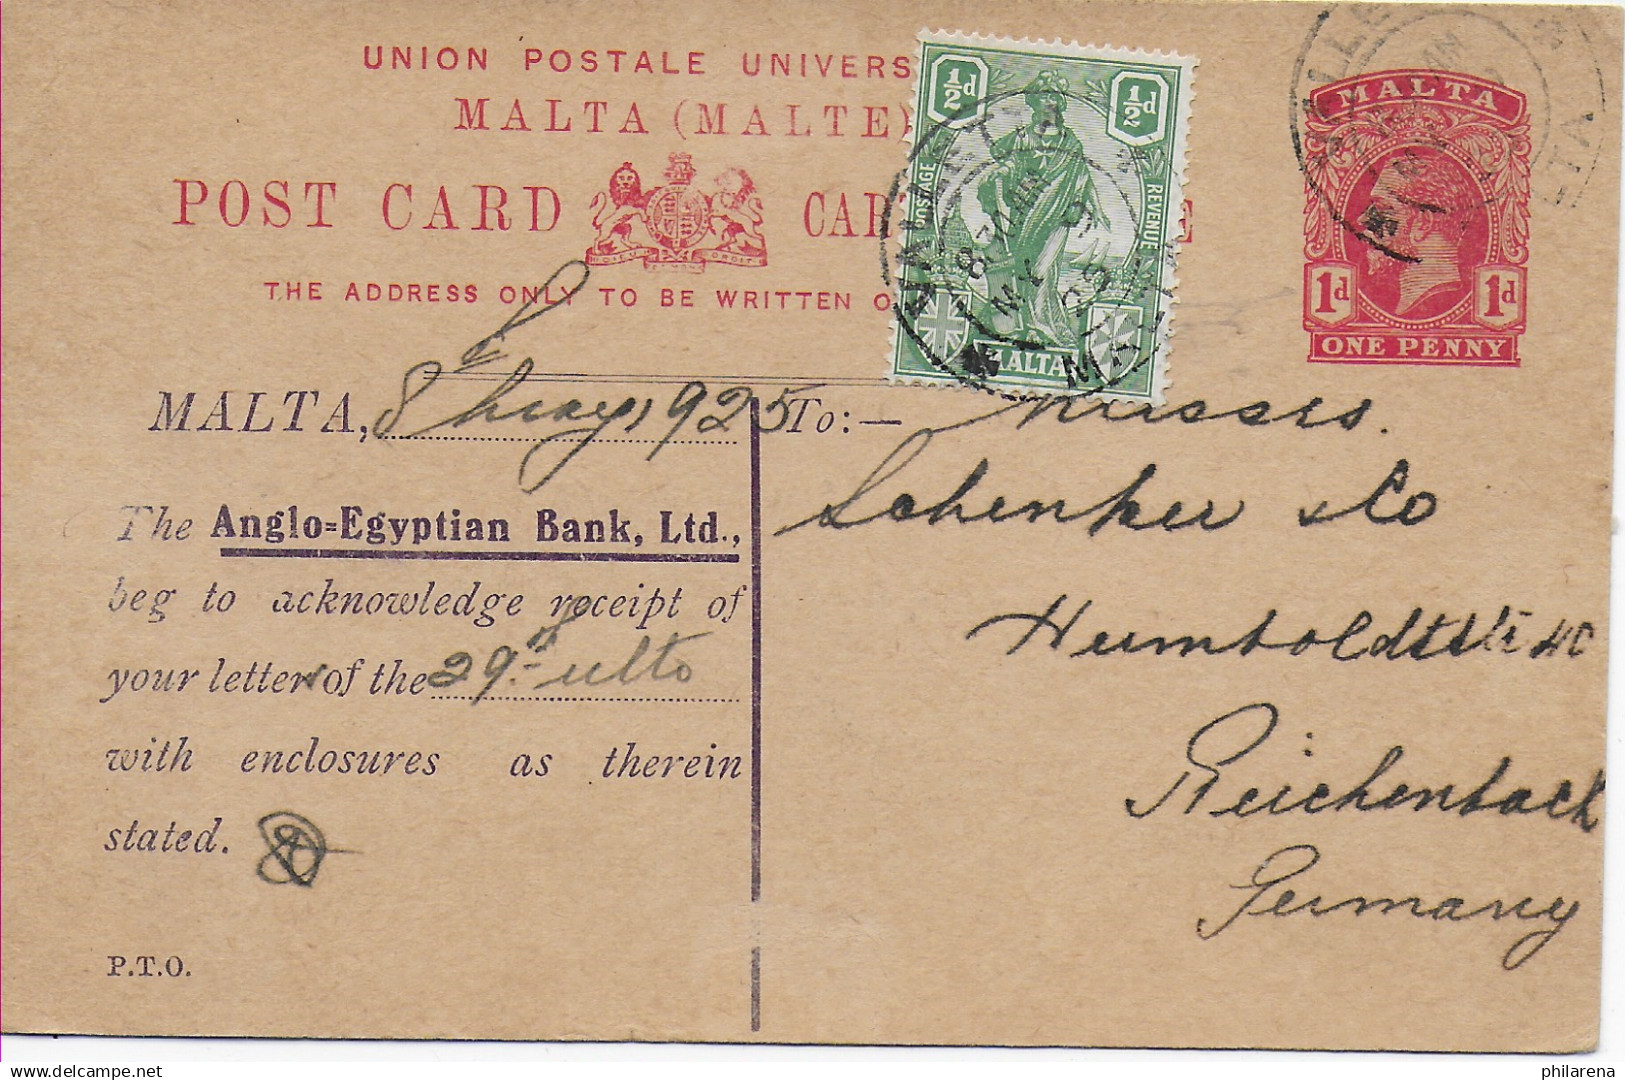 UNION POSTALE UNIVERS
MALTA (MALTE)
POST CARD CAR E
THE ADDRESS ONLY TO BE WRITTEN O
½d ½d
POSTAGE REVENUE
MALTA
VALLETTA
8-30 AM
MY 9
25
MALTA
MALTA
1d 1d
ONE PENNY
MALTA, 8th May 1925
The Anglo=Egyptian Bank, Ltd.,
beg to acknowledge receipt of
your letter of the 29th ulto
with enclosures as therein
stated.
P.T.O.
To:— Messrs.
Schenker & Co
Humboldtstr 40
Reichenbach
Germany
philarena